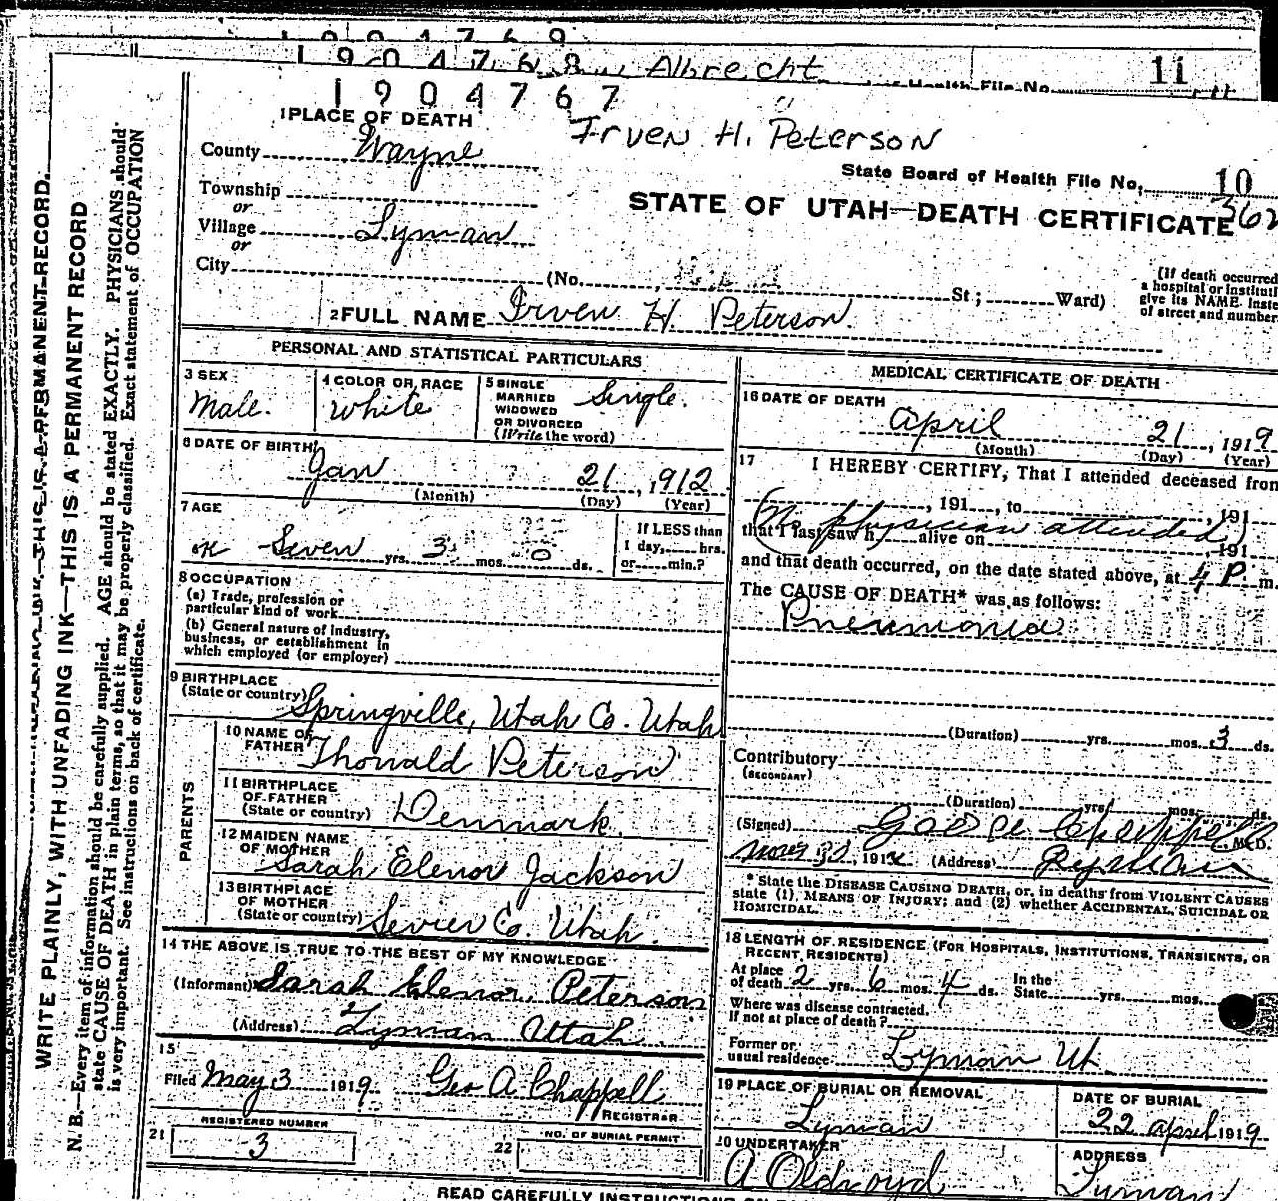 1904769
1904768 Albrecht 11
Health File No.
1904767
1 PLACE OF DEATH
Irven H. Peterson
County Wayne
State Board of Health File No. 10
Township
STATE OF UTAH—DEATH CERTIFICATE 362
or
Village Lyman
or
City (No. St; Ward)
(If death occurred
a hospital or instituti
give its NAME. inste
of street and number.
2 FULL NAME Irven H. Peterson.
WRITE PLAINLY, WITH UNFADING INK—THIS IS A PERMANENT RECORD
N. B.—Every item of information should be carefully supplied. AGE should be stated EXACTLY. PHYSICIANS should
state CAUSE OF DEATH in plain terms, so that it may be properly classified. Exact statement of OCCUPATION
is very important. See instructions on back of certificate.
PERSONAL AND STATISTICAL PARTICULARS
3 SEX
Male.
4 COLOR OR RACE
White
5 SINGLE
MARRIED
WIDOWED
OR DIVORCED
(Write the word)
Single.
6 DATE OF BIRTH
Jan 21, 1912
(Month) (Day) (Year)
7 AGE
Seven yrs. 3 mos. 0 ds.
If LESS than
1 day, hrs.
or min.?
8 OCCUPATION
(a) Trade, profession or
particular kind of work
(b) General nature of industry,
business, or establishment in
which employed (or employer)
9 BIRTHPLACE
(State or country) Springville, Utah Co. Utah
PARENTS
10 NAME OF
FATHER Thonald Peterson
11 BIRTHPLACE
OF FATHER
(State or country) Denmark.
12 MAIDEN NAME
OF MOTHER
Sarah Elenor Jackson
13 BIRTHPLACE
OF MOTHER
(State or country) Sevier Co. Utah.
14 THE ABOVE IS TRUE TO THE BEST OF MY KNOWLEDGE
(Informant) Sarah Elenor Peterson
(Address) Lyman Utah
15
Filed May 3 1919. Geo A. Chappell
REGISTRAR
REGISTERED NUMBER
21 3
NO. OF BURIAL PERMIT
22
MEDICAL CERTIFICATE OF DEATH
16 DATE OF DEATH
April 21, 1919
(Month) (Day) (Year)
17 I HEREBY CERTIFY, That I attended deceased from
, 191 , to , 191
(No physician attended)
that I last saw h alive on , 191
and that death occurred, on the date stated above, at 4 P. m.
The CAUSE OF DEATH* was as follows:
Pneumonia
(Duration) yrs. mos. 3 ds.
Contributory
(SECONDARY)
(Duration) yrs. mos. ds.
(Signed) Chappell M.D.
, 191 (Address) Lyman
* State the DISEASE CAUSING DEATH, or, in deaths from VIOLENT CAUSES
state (1), MEANS OF INJURY; and (2) whether ACCIDENTAL, SUICIDAL OR
HOMICIDAL.
18 LENGTH OF RESIDENCE (FOR HOSPITALS, INSTITUTIONS, TRANSIENTS, OR
RECENT RESIDENTS)
At place
of death 2 yrs. 6 mos. 4 ds.
In the
State yrs. mos.
Where was disease contracted,
If not at place of death?
Former or
usual residence Lyman Ut
19 PLACE OF BURIAL OR REMOVAL
Lyman
DATE OF BURIAL
22 april 1919
20 UNDERTAKER
A Oldroyd
ADDRESS
Lyman
READ CAREFULLY INSTRUCTIONS ON